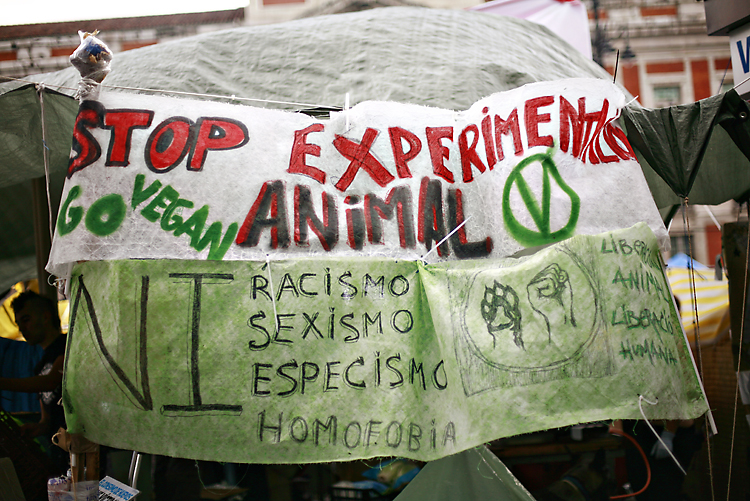 STOP EXPERIMENTACIÓN
GO VEGAN
ANIMAL
V
NI
RACISMO
SEXISMO
ESPECISMO
HOMOFOBIA
LIBERACIÓN
ANIMAL
LIBERACIÓN
HUMANA